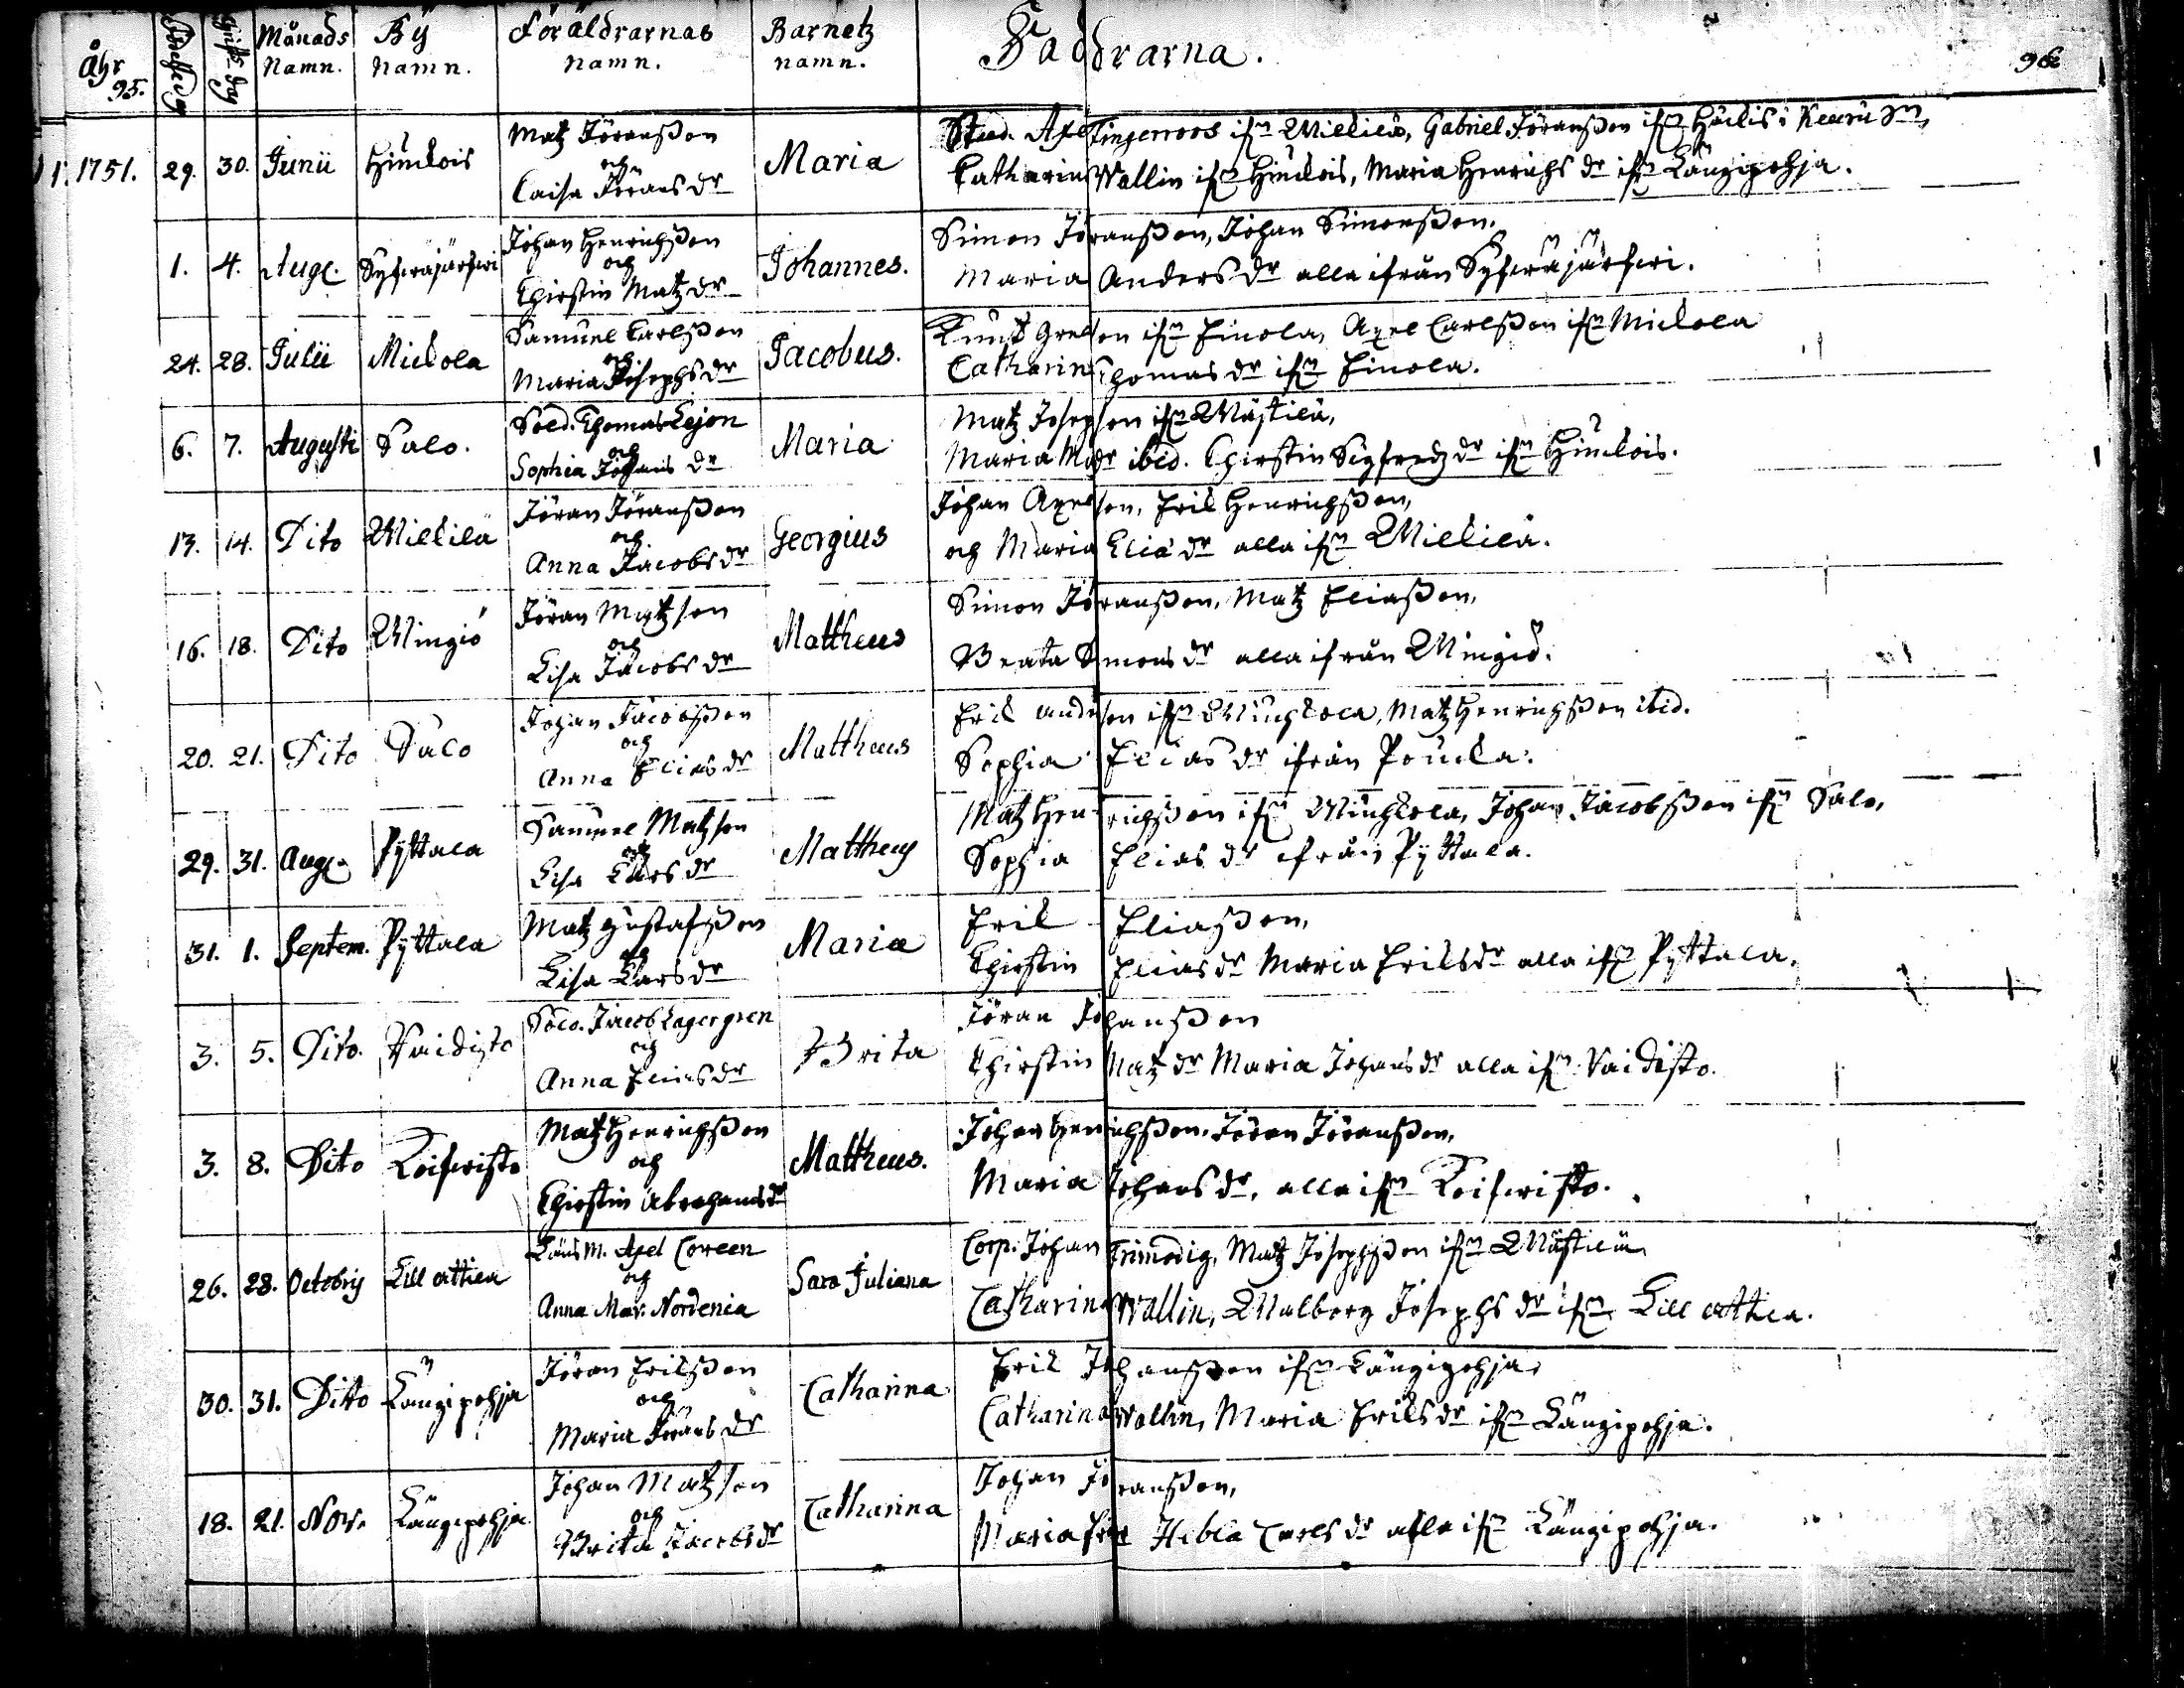 Åhr 95. Födelse dag Christn. dag Månads Namn. Bÿ Namn. Föräldrarnas namn. Barnetz namn. Faddrarna. 96
1751. 29. 30. Junii Hinckois Matz Jöransson och Caisa Jörans dr Maria Stud. Axel Tingerroos ifrn Mickilä, Gabriel Jöransson ifrn Keuru Sn,
Catharina Wallin ifrn Hinckois, Maria Henrichs dr ifrn Längipohja.
1. 4. Aug. Syfwäjärfwi Johan Henrichsson och Chirstin Matz dr Johannes. Simon Jöransson, Johan Simonsson.
Maria Anders dr alla ifrån Syfwäjärfwi.
24. 28. Julii Mickola Samuel Carlsson och Maria Josephs dr Jacobus. Knut Grelson ifrn Finola, Axel Carlsson ifrn Mickola
Catharina Thomas dr ifrn Finola.
6. 7. Augusti Salo. Sold. Thomas Lejon och Sophia Johans dr Maria Matz Josephson ifrn Mästilä,
Maria dr ibid. Chirstin Sigfredz dr ifrn Hinckois.
13. 14. Dito Mickilä Jöran Jöransson och Anna Jacobs dr Georgius Johan Axelson, Erik Henrichsson,
och Maria Eliæ dr alla ifrn Mickilä.
16. 18. Dito Mingiö Jöran Matzson och Lisa Jacobs dr Mattheus Simon Jöransson, Matz Eliasson,
Beata Simons dr alla ifrån Mingiö.
20. 21. Dito Salo Johan Jacobsson och Anna Elias dr Mattheus Erik Anderson ifrn Munckola, Matz Henrichsson ibid.
Sophia Elias dr ifrån
29. 31. Aug. Pyttala Samuel Matzson och Lisa Lars dr Mattheus Matz Henrichsson ifrn Munckola, Johan Jacobsson ifrn Salo,
Sophia Elias dr ifrån Pyttala.
31. 1. Septem. Pyttala Matz Gustafsson och Lisa Lars dr Maria Erik Eliasson,
Chirstin Elias dr Maria Eriks dr alla ifrn Pyttala.
3. 5. Dito. Vaidisto Sold. Jacob Lagergren och Anna Elias dr Brita Jöran Johansson
Chirstin Matz dr Maria Johans dr alla ifrn Vaidisto.
3. 8. Dito Koifwisto Matz Henrichsson och Chirstin Abrahams dr Mattheus. Johan Henrichsson, Jöran Jöransson,
Maria Johans dr, alla ifrn Koifwisto.
26. 28. Octobris Lill attila Läns M. Axel Coreen och Anna Mar. Nordenia Sara Juliana Corp. Johan Frimodig, Matz Josephsson ifrn Mästilä
Catharina Wallin, Walborg Josephs dr ifrn Lill attila.
30. 31. Dito Längipohja Jöran Eriksson och Maria Jörans dr Catharina Erik Johansson ifrn Längipohja,
Catharina Wallin, Maria Eriks dr ifrn Längipohja.
18. 21. Nov. Längipohja Johan Matzson och Brita Jacobs dr Catharina Johan Jöransson,
Maria Hebla Carls dr alla ifrn Längipohja.